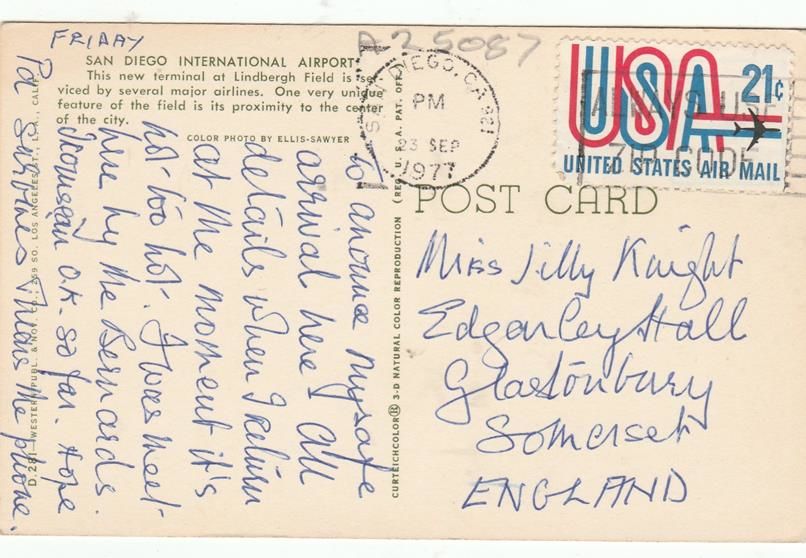 FRIDAY
SAN DIEGO INTERNATIONAL AIRPORT
This new terminal at Lindbergh Field is ser-
viced by several major airlines. One very unique
feature of the field is its proximity to the center
of the city.
COLOR PHOTO BY ELLIS-SAWYER
to anounce my safe
arrival here I all
details when I return
at the moment it's
not too hot. I was meet-
here by the Bernards.
O.K. so far. Hope
the phone.
D.281—WESTERN PUBL. & NOV. CO., 259 SO. LOS ANGELES ST., L.A., CALIF.
CURTEICHCOLOR® 3-D NATURAL COLOR REPRODUCTION (REG. U.S.A. PAT. OFF.)
A25087
SAN DIEGO, CA 921
PM
23 SEP
1977
ALWAYS USE
ZIP CODE
USA 21c
UNITED STATES AIR MAIL
POST CARD
Miss Jilly Knight
Edgarley Hall
Glastonbury
Somerset
ENGLAND